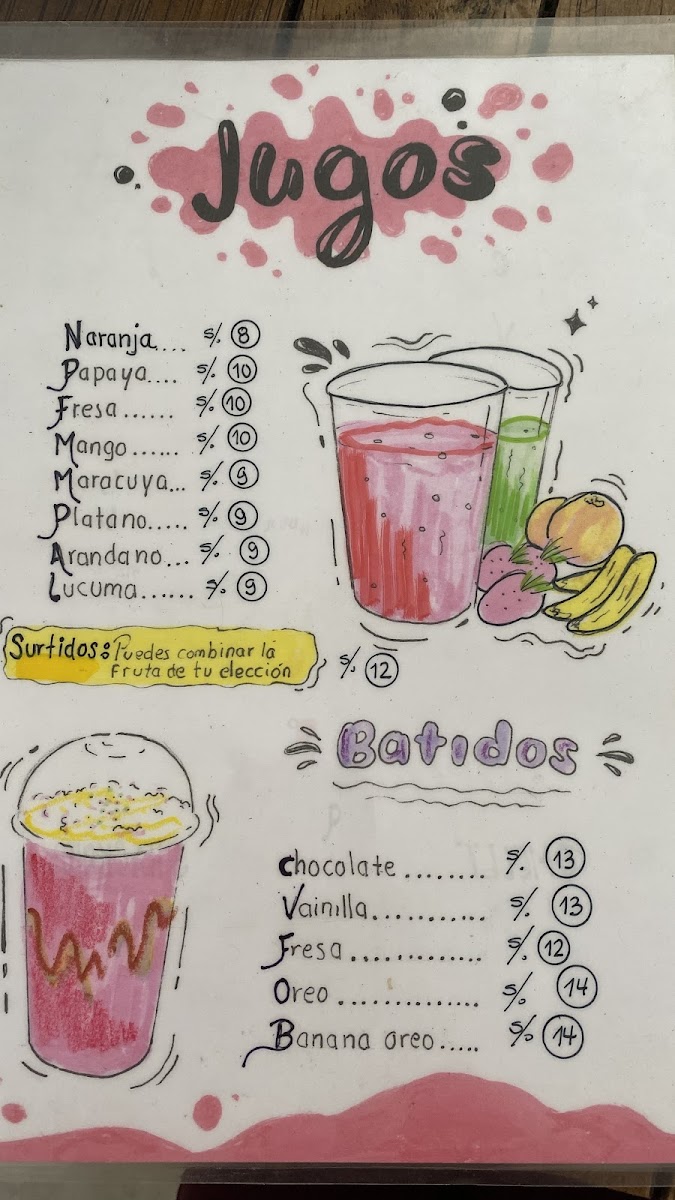 Jugos
Naranja.... s/. 8
Papaya.... s/. 10
Fresa...... s/. 10
Mango...... s/. 10
Maracuya... s/. 9
Platano..... s/. 9
Arandano... s/. 9
Lucuma...... s/. 9
Surtidos: Puedes combinar la
Fruta de tu elección s/. 12
Batidos
Chocolate........ s/. 13
Vainilla........... s/. 13
Fresa............. s/. 12
Oreo.............. s/. 14
Banana oreo..... s/. 14